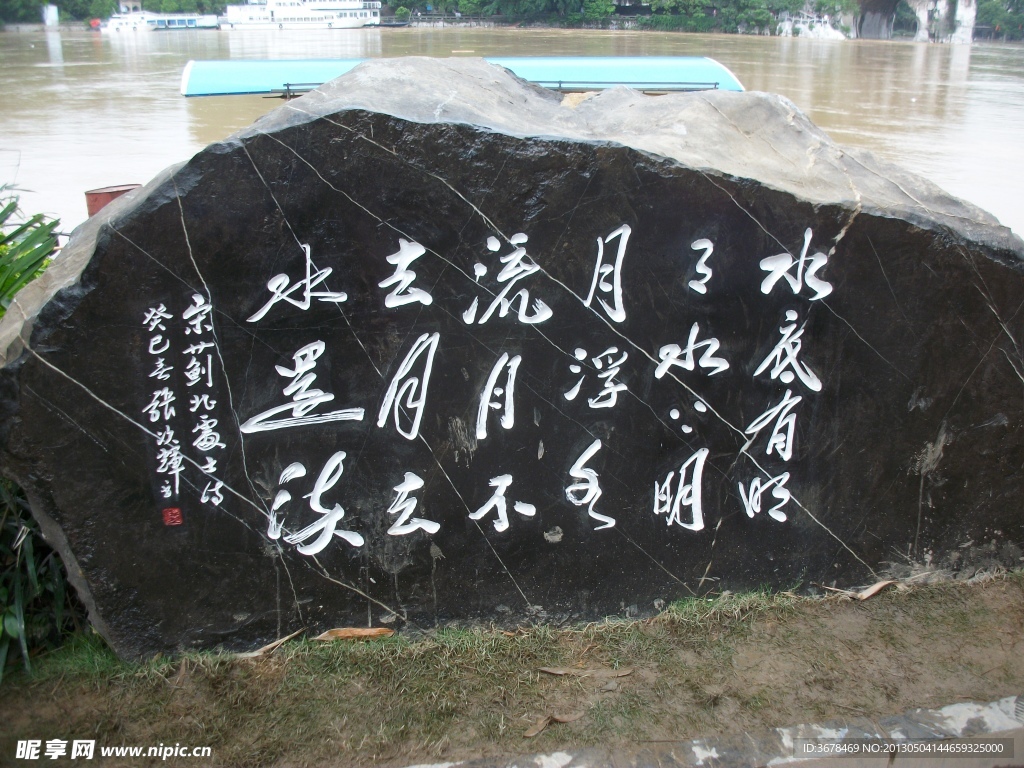 水底有明
月水上明
月浮水
流月不
去月去
水還流
宋蓟北處士詩
癸巳春張
昵享网 www.nipic.cn
ID:3678469 NO:20130504144659325000